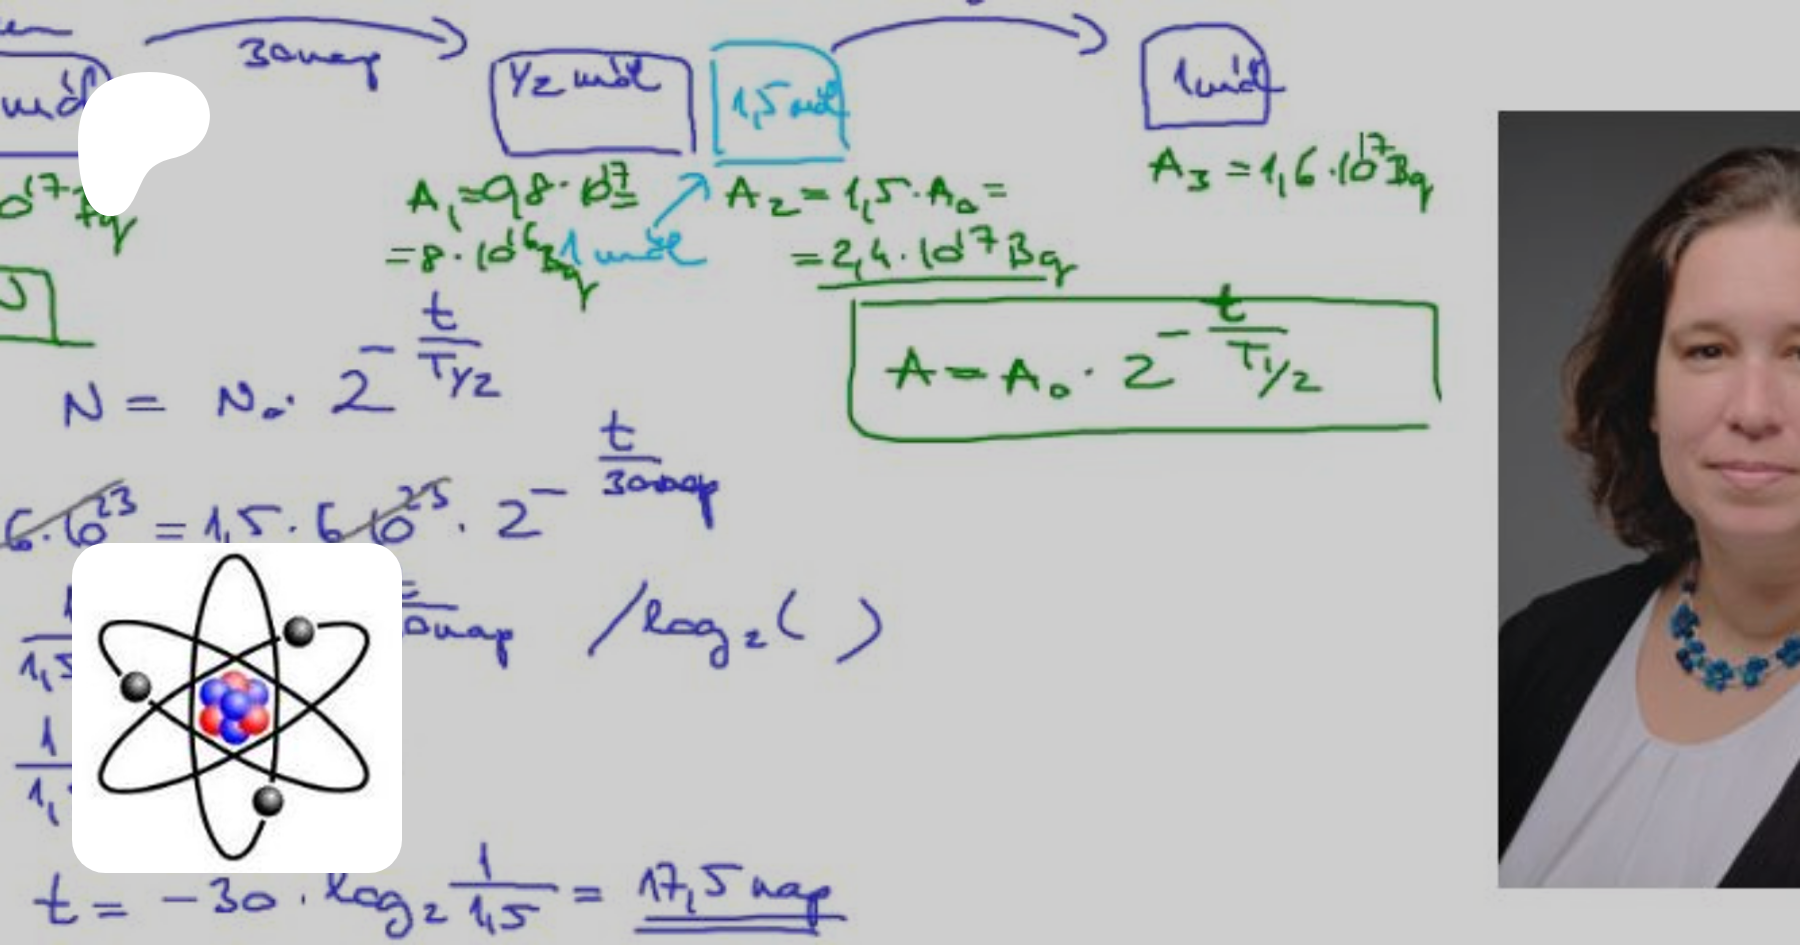 30 nap
mól
1/2 mól
1,5 mól
1 mól
A₁ = 0,8 · 10¹⁷ =
= 8 · 10¹⁶ Bq
1 mól
A₂ = 1,5 · A₀ =
= 2,4 · 10¹⁷ Bq
A₃ = 1,6 · 10¹⁷ Bq
N = N₀ · 2^(-t/T1/2)
A = A₀ · 2^(-t/T1/2)
6 · 10²³ = 1,5 · 6 · 10²³ · 2^(-t/30 nap)
/log₂( )
t = -30 · log₂ 1/1,5 = 17,5 nap